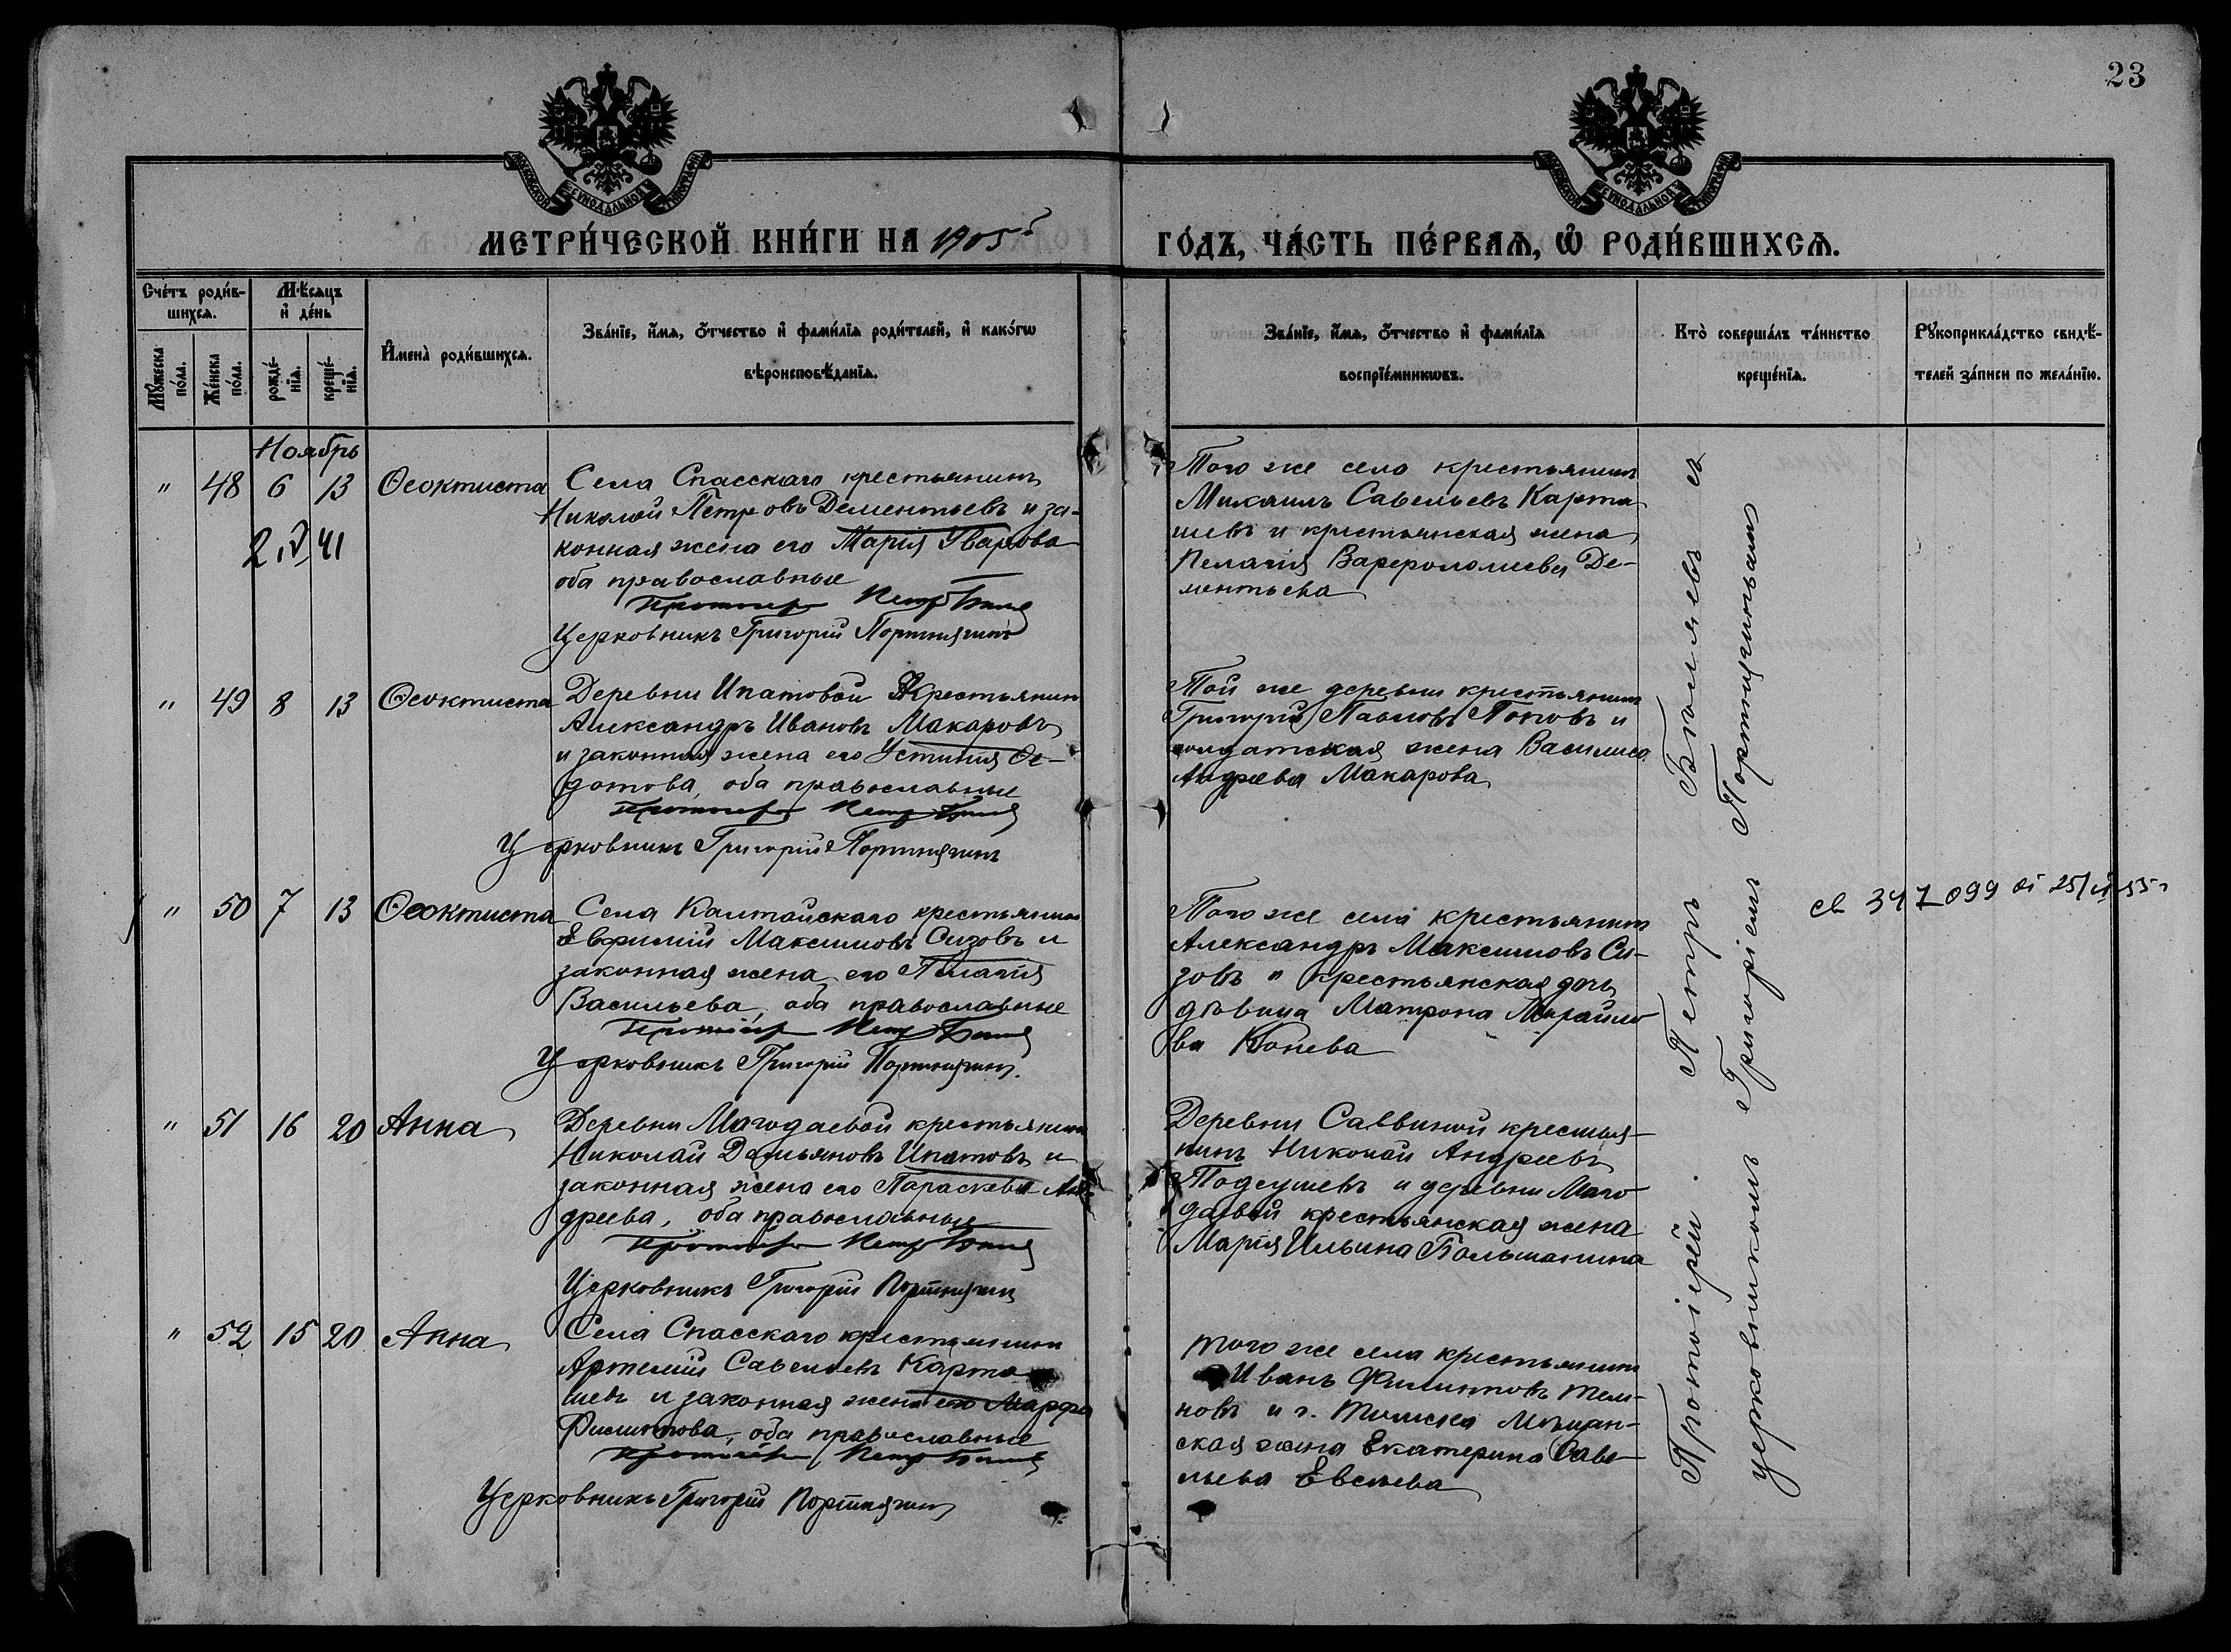 23
МЕТРИ́ЧЕСКОЙ КНИ́ГИ НА 1905й ГО́ДЪ, ЧА́СТЬ ПЕ́РВАѦ, Ѡ҆ РОДИ́ВШИХСѦ.
Сче́тъ роди́в-
шихсѧ.
Мѣ́сѧцъ
и҆ де́нь
Мꙋ́жеска
по́ла.
Же́нска
по́ла.
рожде́-
нїѧ.
креще́-
нїѧ.
И҆мена̀ роди́вшихсѧ.
Зва́нїе, и҆́мѧ, ѻ҆́тчество и҆ фами́лїѧ роди́телей, и҆ како́гѡ
вѣроисповѣ́данїѧ.
Зва́нїе, и҆́мѧ, ѻ҆́тчество и҆ фами́лїѧ
воспрїе́мникѡвъ.
Кто̀ соверша́лъ та́инство
креще́нїѧ.
Рꙋкоприкла́дство свидѣ́-
телей за́писи по жела́нїю.
Ноябрь
" 48 6 13 Ѳеоктиста
Села Спасскаго крестьянинъ
Николай Петровъ Дементьевъ и за-
конная жена его Марія Уварова
оба православные
Протоіер Петр
Церковникъ Григорій Портнягинъ
Того же села крестьянинъ
Михаилъ Савельевъ Карта
шевъ и крестьянская жена
Пелагія Варфоломеева Де-
ментьева
" 49 8 13 Ѳеоктиста
Деревни Ипатовой Крестьянин
Александръ Ивановъ Макаровъ
и законная жена его Устинія Ѳе-
дотова, оба православные
Протоіер Петр
Церковникъ Григорій Портнягинъ
Той же деревни крестьянинъ
Григорій Павловъ Поповъ и
солдатская жена Василиса
Андреева Макарова
" 50 7 13 Ѳеоктиста
Села Калтайскаго крестьянинъ
Евфимій Максимовъ Сизовъ и
законная жена его Пелагія
Васильева, оба православные
Протоіер Петр
Церковникъ Григорій Портнягинъ.
Того же села крестьянинъ
Александръ Максимовъ Си-
зовъ и крестьянская дочь
дѣвица Матрона Михайло
ва Конева
св 347099
" 51 16 20 Анна
Деревни Магодаевой крестьянинъ
Николай Демьяновъ Ипатовъ и
законная жена его Параскева Ан-
дреева, оба православные
Протоіер Петр
Церковникъ Григорій Портнягин
Деревни Саввиной крестья-
нинъ Николай Андреевъ
Подсушевъ и деревни Маго
даевой крестьянская жена
Марія Ильина Большанина
" 52 15 20 Анна
Села Спасскаго крестьянинъ
Артемій Савельевъ Карта
шевъ и законная жена его Марфа
Филиппова, оба православные
Протоіер Петр
Церковникъ Григорій Портнягин
того же села крестьянинъ
Иванъ Филипповъ
новъ и г. Томска Мѣщан-
ская жена Екатерина Саве-
льева Евсеева
Протоіерей Петръ Бѣляевъ съ
церковникомъ Григоріемъ Портнягинымъ